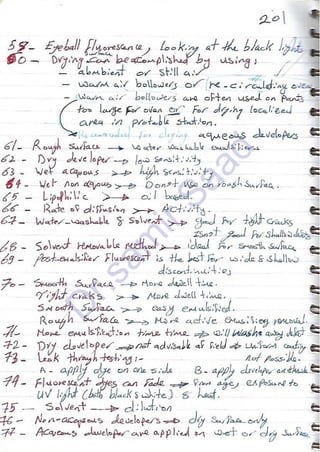 201
58 - Eyeball Fluorescence, Looking at the black lights
60 - Drying can be accomplished by using:
Surface
- abmbient or still air
- warm air bollowers or (re-circulating oven
- warm air bollowers are often used on parts
too large for oven or For drying localized
area in protable station.
Recommended for drying aqueous developers
61 - Rough Surface → water washable emulsifiers
62 - Dry developer → low Sensitivity
63 - Wet aquous → high Sensitivity
64 - Wet non aqeous → Donot use on rough Surface.
65 - Lipophilic → oil based.
66 - Rate of difusion → Activity.
67 - Water-washable & Solvent → good For tight cracks
is not good For Shallow disc
68 - Solvent removable method → ideal For smooth Surface
69 - Postemulsifier Fluorescent is the best For wide & shallow
discontinuities
70 - Smooth Surface → More dwell time.
Tight craks → More dwell time.
Smooth Surface → easy emulsified.
Rough Surface → More active emulsifier removal.
71 - More emulsification time time → will washe away defect
72 - Dry developer → not advisable at field → uniform coating
not possible.
73 - Leak through testing:-
A - apply dye on one side B - apply developer on other side
74 - Fluorescent dyes can Fade → From age, exposure to
UV light (both black & white) & heat.
75 - Solvent → dilution
76 - Non-aqeous developers → dry Surface only
77 - Aqeous developer are applied on wet or dry Surface